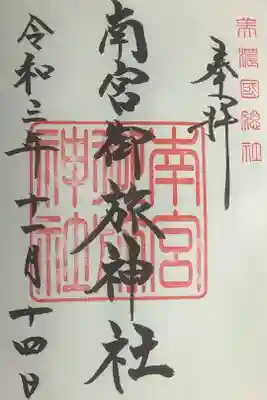 美濃國総社
奉拝
南宮御旅神社
南宮御旅神社
令和三年十一月十四日